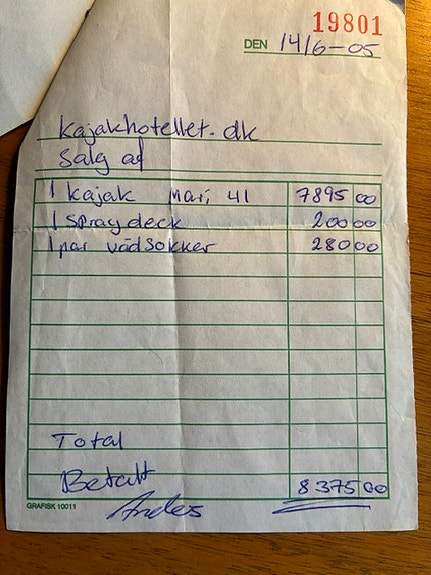 19801
DEN 14/6-05
Kajakhotellet.dk
Salg af
1 kajak Mari, 41 7895 00
1 spraydeck 200 00
1 par vådsokker 280 00
Total
Betalt 8375 00
Andes
GRAFISK 10011